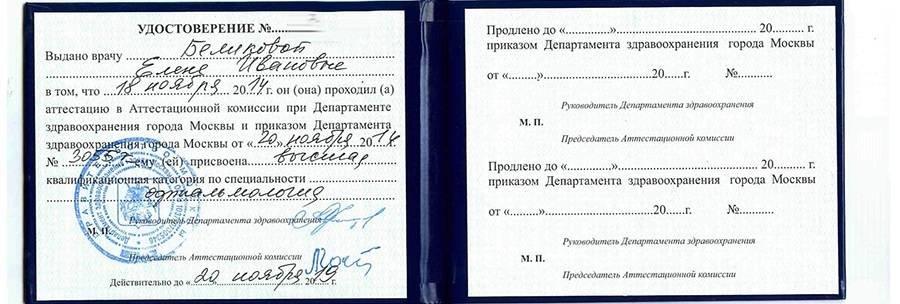 УДОСТОВЕРЕНИЕ №...............
Выдано врачу Беликовой
Елене Ивановне
в том, что 18 ноября 2014г. он (она) проходил (а)
аттестацию в Аттестационной комиссии при Департаменте
здравоохранения города Москвы и приказом Департамента
здравоохранения города Москвы от «20» ноября 2014
№ ему (ей) присвоена высшая
квалификационная категория по специальности
офтальмология
Руководитель Департамента здравоохранения
М. П.
Председатель Аттестационной комиссии
Действительно до «20 ноября 2019
Продлено до «............»...................................... 20........... г.
приказом Департамента здравоохранения города Москвы
от «........»...........................20......г. №...........
Руководитель Департамента здравоохранения
М. П.
Председатель Аттестационной комиссии
Продлено до «............»...................................... 20........... г.
приказом Департамента здравоохранения города Москвы
от «........»...........................20......г. №...........
Руководитель Департамента здравоохранения
М. П.
Председатель Аттестационной комиссии